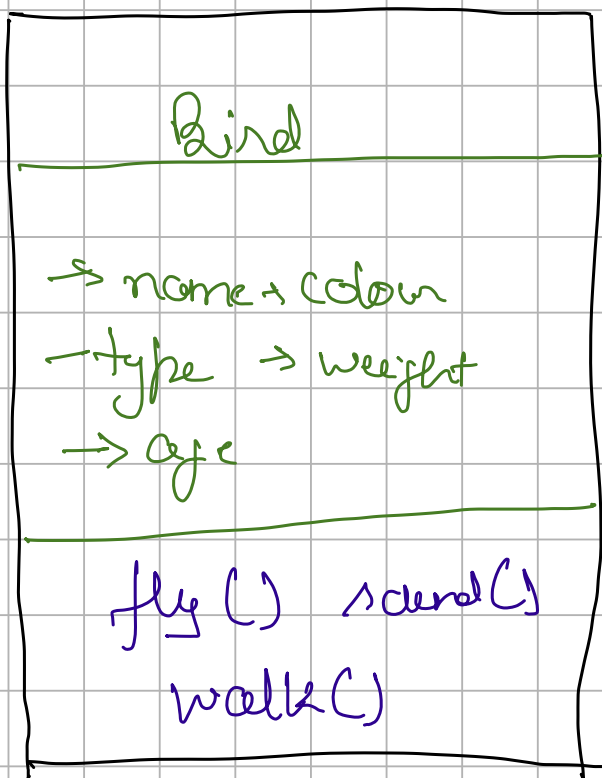 Bird
→ name → colour
→ type → weight
→ age
fly() sound()
walk()